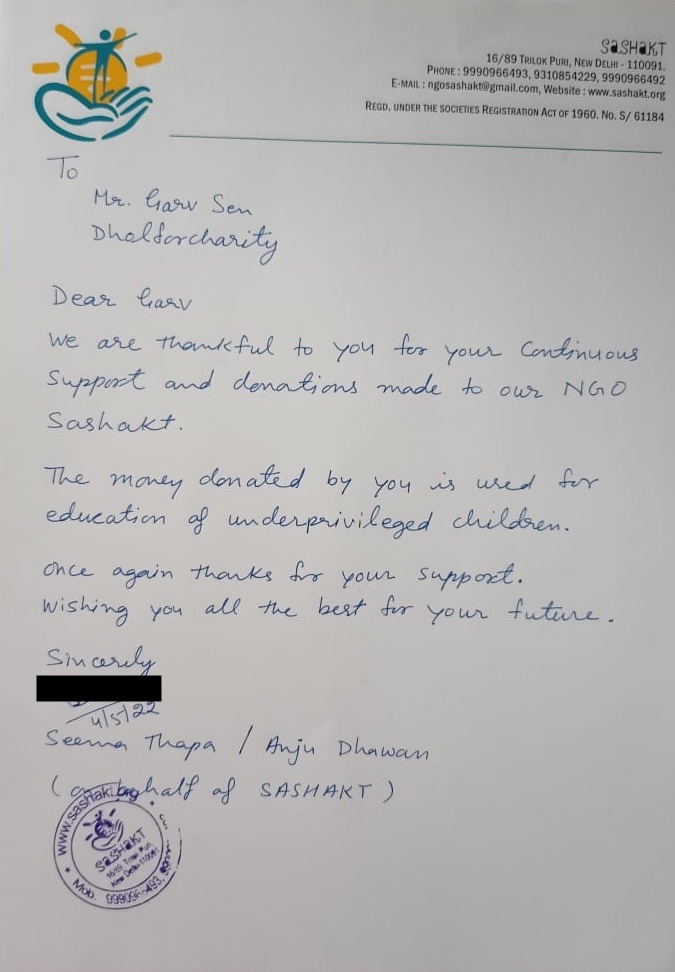 SaSHaKT
16/89 TRILOK PURI, NEW DELHI - 110091.
PHONE : 9990966493, 9310854229, 9990966492
E-MAIL : ngosashakt@gmail.com, Website : www.sashakt.org
REGD. UNDER THE SOCIETIES REGISTRATION ACT OF 1960. No. S/ 61184
To
Mr. Garv Sen
Dholforcharity
Dear Garv
We are thankful to you for your Continuous
Support and donations made to our NGO
Sashakt.
The money donated by you is used for
education of underprivileged children.
once again thanks for your support.
Wishing you all the best for your future.
Sincerely
4/5/22
Seema Thapa / Anju Dhawan
(on behalf of SASHAKT)
www.sashakt.org
SaSHaKT
16/89 Trilok Puri
New Delhi-110091
Mob. 9990966493,